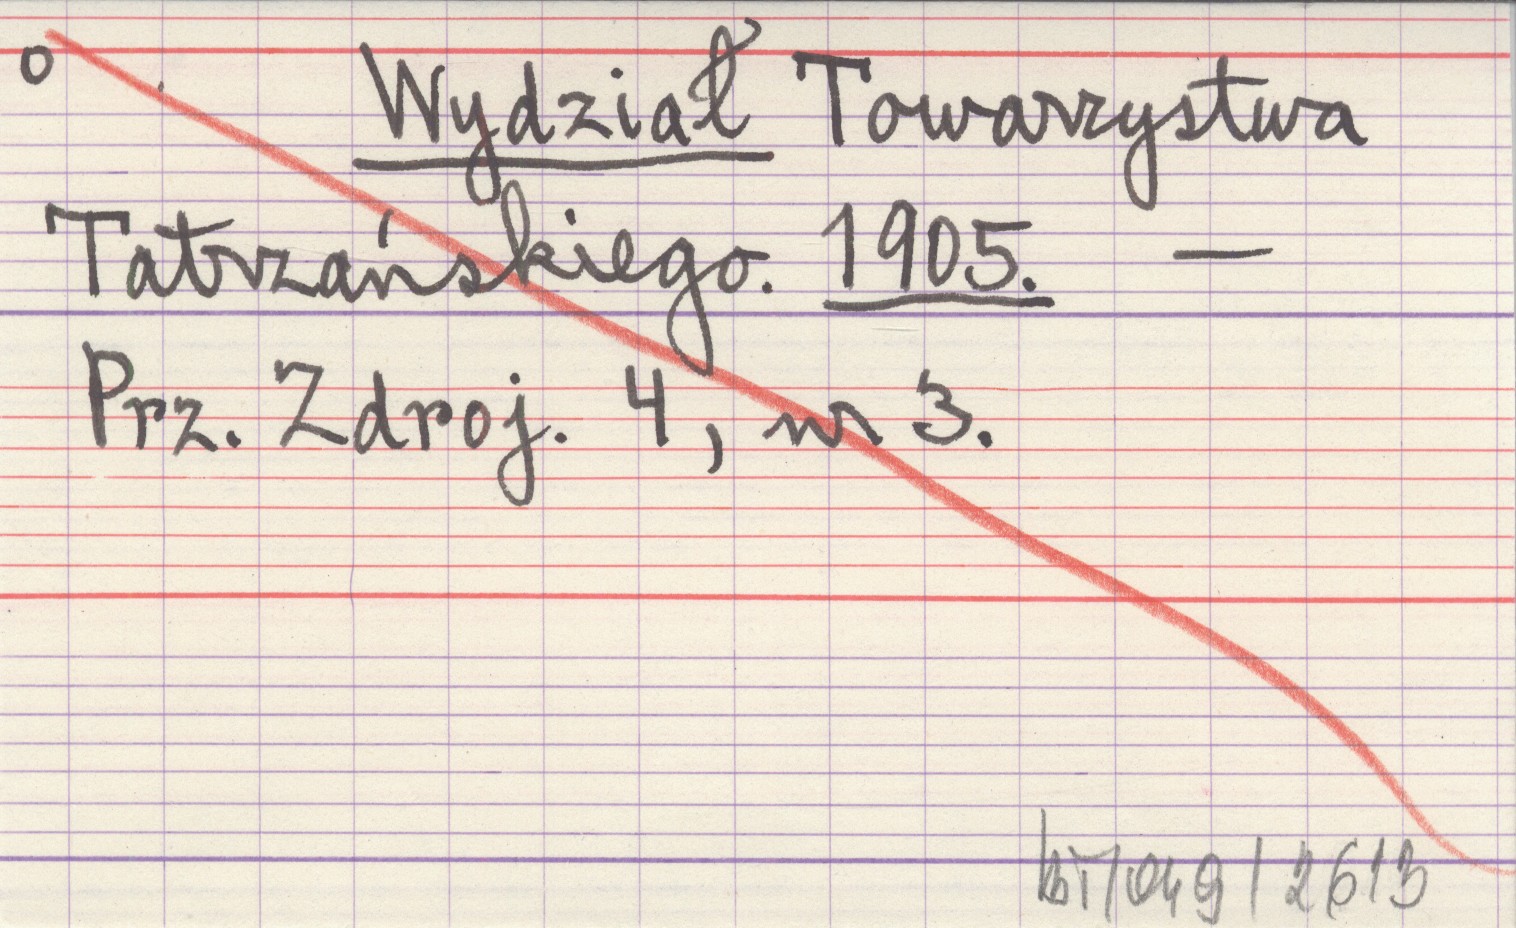 o Wydział Towarzystwa
Tatrzańskiego. 1905. —
Prz. Zdroj. 4, nr 3.
bT/049/2613